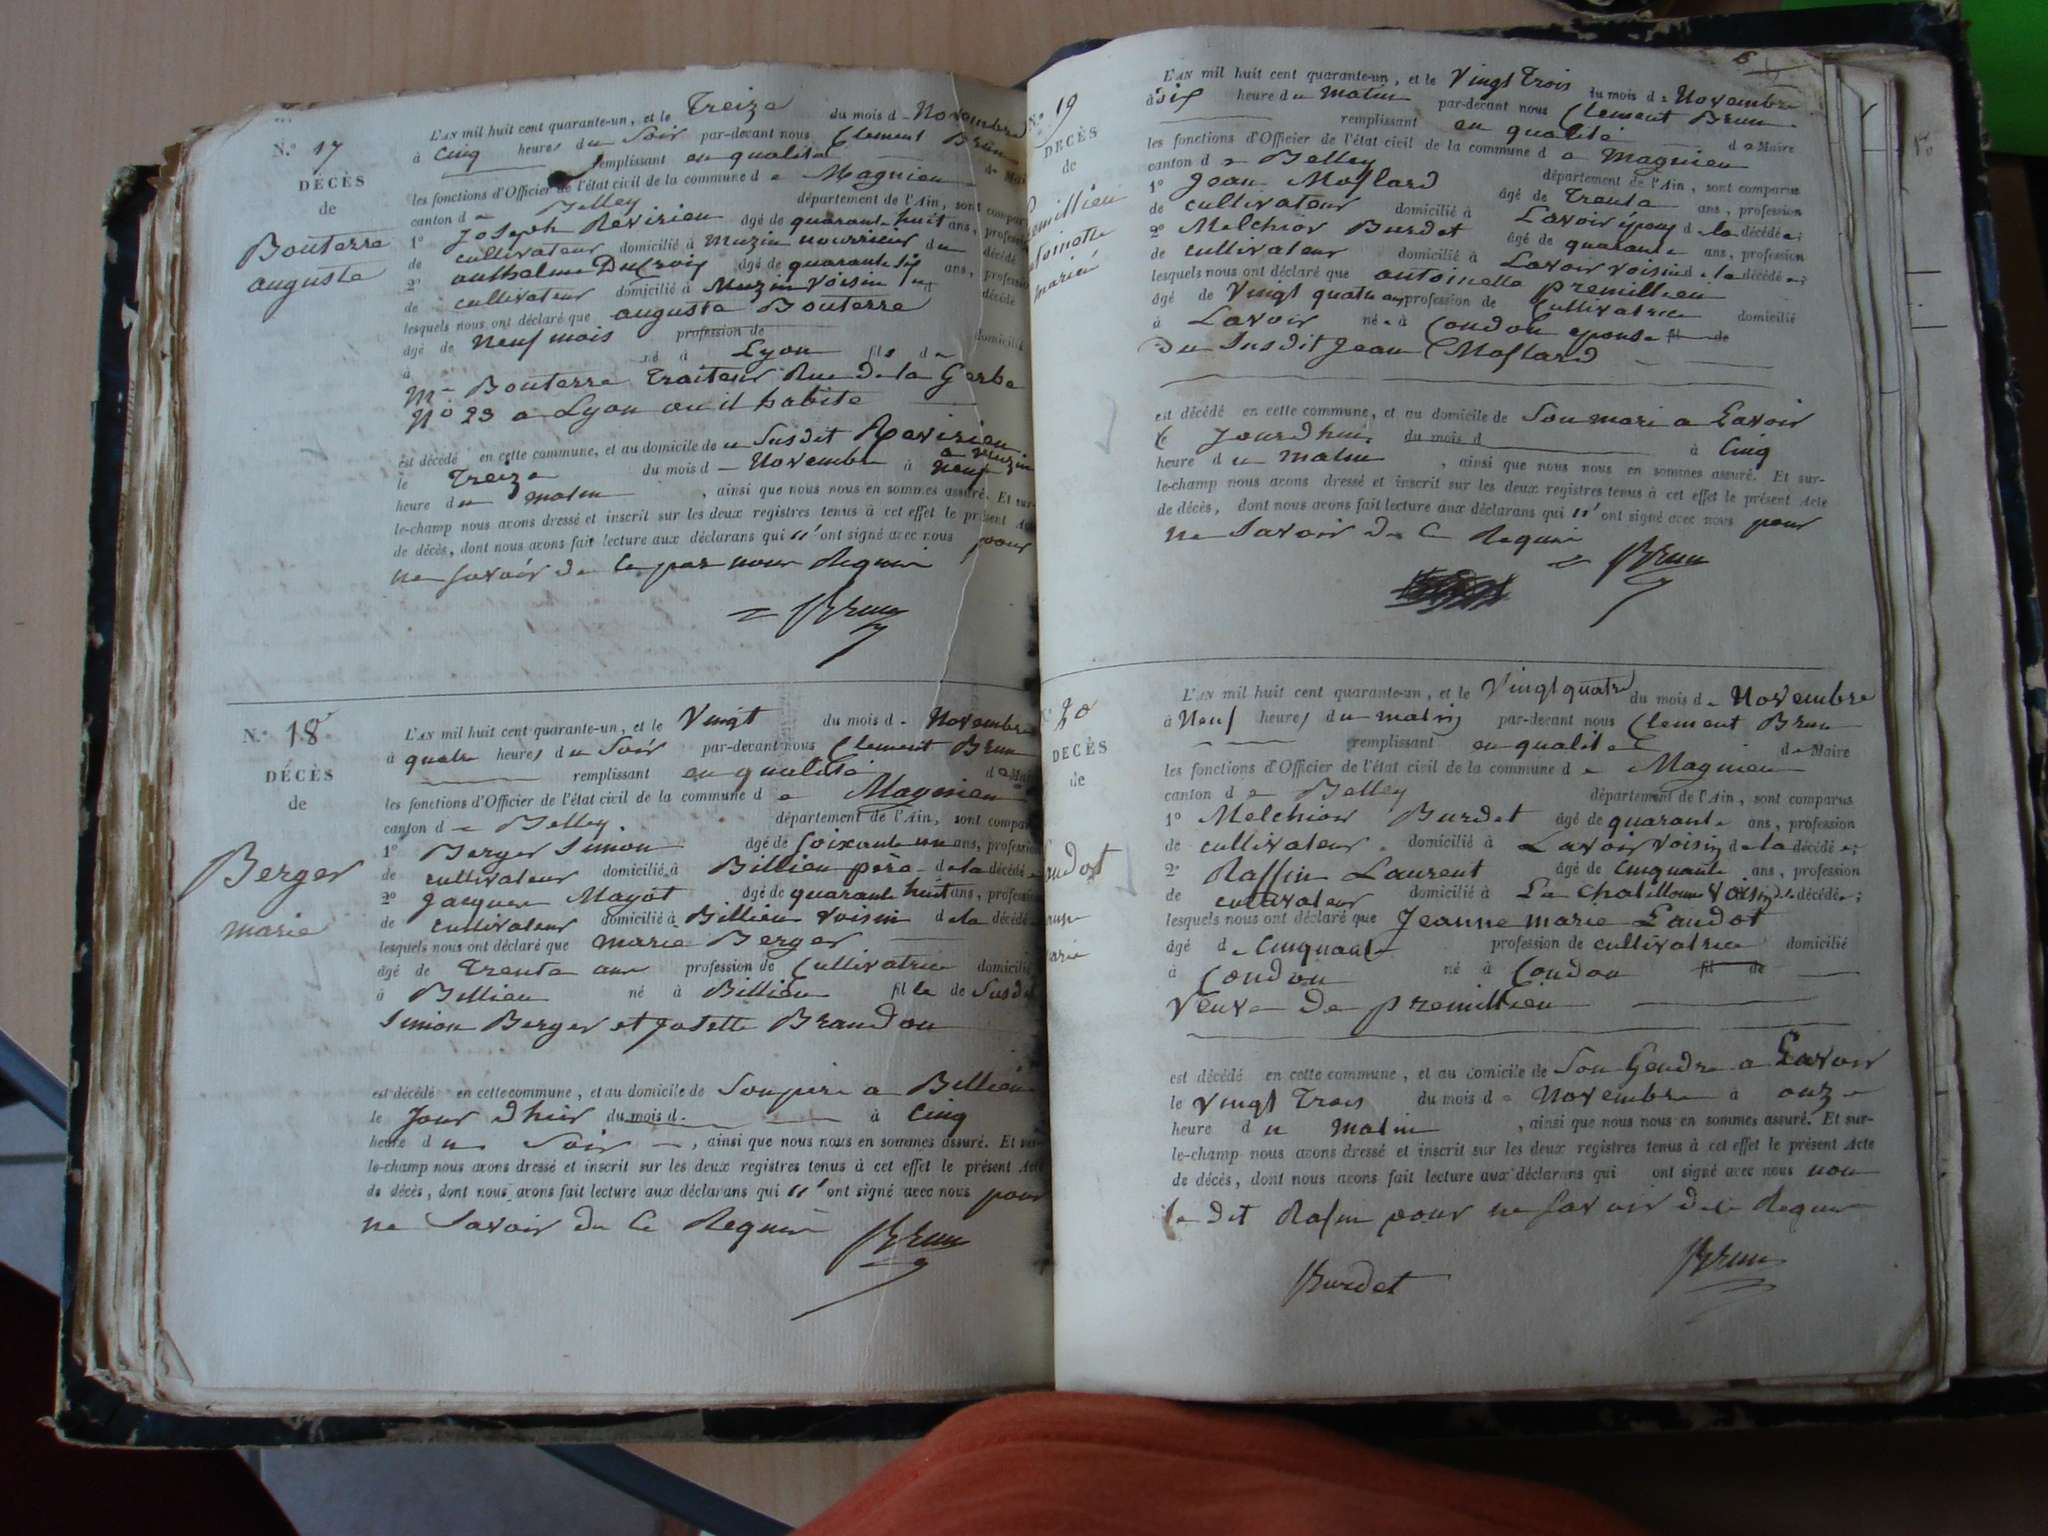 N.º 17
DÉCÈS
de
Bouterre
auguste
L'AN mil huit cent quarante-un, et le Treize du mois de Novembre
à Cinq heures du Soir par-devant nous Clement Brun
remplissant en qualité de Maire
les fonctions d'Officier de l'état civil de la commune de Magnieu
canton de Belley département de l'Ain, sont comparus
1º Joseph Revirieu âgé de quarante huit ans, profession
de cultivateur domicilié à Muzin nourricier du décédé
2º anthelme Ducroix âgé de quarante six ans, profession
de cultivateur domicilié à Muzin Voisin du décédé
lesquels nous ont déclaré que auguste Bouterre
âgé de Neuf mois profession de domicilié
à né à Lyon fils de
Mr Bouterre Traiteur Rue de la Gerbe
Nº 23 a Lyon ou il habite
est décédé en cette commune, et au domicile de u Susdit Revirieu a Muzin
le Treize du mois de Novembre à Neuf
heure du matin, ainsi que nous nous en sommes assuré. Et sur-
le-champ nous avons dressé et inscrit sur les deux registres tenus à cet effet le présent Acte
de décès, dont nous avons fait lecture aux déclarans qui n'ont signé avec nous pour
ne savoir de ce par nous Requis
Brun
N.º 18
DÉCÈS
de
Berger
marie
L'AN mil huit cent quarante-un, et le Vingt du mois de Novembre
à quatre heures du Soir par-devant nous Clement Brun
remplissant en qualité de Maire
les fonctions d'Officier de l'état civil de la commune de Magnieu
canton de Belley département de l'Ain, sont comparus
1º Berger Simon âgé de soixante un ans, profession
de cultivateur domicilié à Billieu père de la décédée
2º Jacques Mayot âgé de quarante huit ans, profession
de cultivateur domicilié à Billieu Voisin de la décédée
lesquels nous ont déclaré que marie Berger
âgé de Trente ans profession de Cultivatrice domicilié
à Billieu né à Billieu fille de Susdit
Simon Berger et Josette Brandon
est décédé en cette commune, et au domicile de Son père a Billieu
le Jour d'hier du mois d à Cinq
heure du Soir, ainsi que nous nous en sommes assuré. Et sur-
le-champ nous avons dressé et inscrit sur les deux registres tenus à cet effet le présent Acte
de décès, dont nous avons fait lecture aux déclarans qui n'ont signé avec nous pour
ne Savoir de Ce Requis
Brun
6
N.º 19
DÉCÈS
de
Premillieu
antoinette
mariée
L'AN mil huit cent quarante-un, et le Vingt Trois du mois de Novembre
à Six heure du matin par-devant nous Clement Brun
remplissant en qualité de Maire
les fonctions d'Officier de l'état civil de la commune de Magnieu
canton de Belley département de l'Ain, sont comparus
1º Jean Mollard âgé de Trente ans, profession
de cultivateur domicilié à Lavoir époux de la décédée;
2º Melchior Burdet âgé de quarante ans, profession
de cultivateur domicilié à Lavoir voisin de la décédée;
lesquels nous ont déclaré que antoinette premillieu
âgé de Vingt quatre ans profession de Cultivatrice domicilié
à Lavoir née à Condon epouse fil de
Du Susdit Jean Mollard
est décédé en cette commune, et au domicile de Son mari a Lavoir
le Jourdhui du mois d à Cinq
heure du matin, ainsi que nous nous en sommes assuré. Et sur-
le-champ nous avons dressé et inscrit sur les deux registres tenus à cet effet le présent Acte
de décès, dont nous avons fait lecture aux déclarans qui n'ont signé avec nous pour
ne Savoir de Ce Requis
Brun
20
DÉCÈS
de
L'AN mil huit cent quarante-un, et le Vingt quatre du mois de Novembre
à Neuf heures du matin par-devant nous Clement Brun
remplissant en qualité de Maire
les fonctions d'Officier de l'état civil de la commune de Magnieu
canton de Belley département de l'Ain, sont comparus
1º Melchior Burdet âgé de quarante ans, profession
de cultivateur domicilié à Lavoir Voisin de la décédée;
2º Raffin Laurent âgé de Cinquante ans, profession
de cultivateur domicilié à Voisin de la décédée;
lesquels nous ont déclaré que Jeanne marie Landot
âgé de Cinquante profession de cultivatrice domicilié
à Condon né à Condon fil de
Veuve De premillieu
est décédé en cette commune, et au domicile de Son Gendre a Lavoir
le Vingt Trois du mois de Novembre à onze
heure du matin, ainsi que nous nous en sommes assuré. Et sur-
le-champ nous avons dressé et inscrit sur les deux registres tenus à cet effet le présent Acte
de décès, dont nous avons fait lecture aux déclarans qui ont signé avec nous non
le dit Rafin pour ne savoir de ce Requis
Burdet
Brun